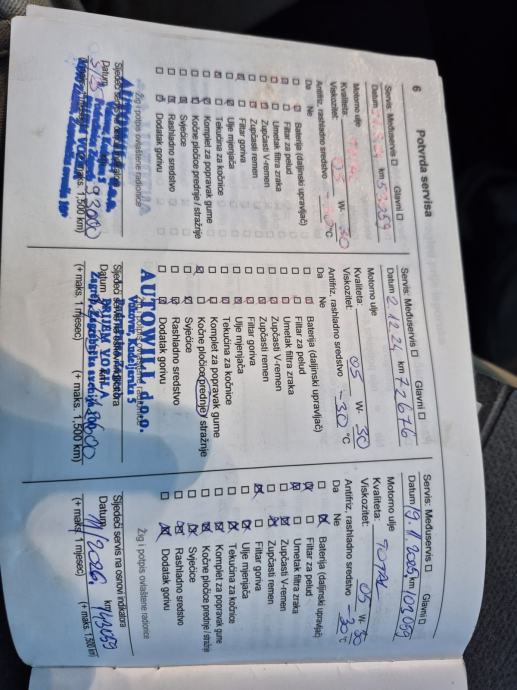 6 Potvrda servisa
Servis: Međuservis ☐ Glavni ☐
Datum km 53259
Motorno ulje
Kvaliteta:
Viskozitet: 05 W- 30
Antifriz, rashladno sredstvo °C
Da Ne
Baterija (daljinski upravljač)
Filtar za pelud
Umetak filtra zraka
Zupčasti V-remen
Zupčasti remen
Filtar goriva
Ulje mjenjača
Tekućina za kočnice
Komplet za popravak gume
Kočne pločice prednje / stražnje
Svjećice
Rashladno sredstvo
Dodatak gorivu
Žig i potpis ovlaštene radionice
Datum 93000
(+ maks. 1.500 km)
Servis: Međuservis ☐ Glavni ☐
Datum 2.12.24 km 72676
Motorno ulje
Kvaliteta:
Viskozitet: 05 W- 30
Antifriz, rashladno sredstvo -30 °C
Da Ne
Baterija (daljinski upravljač)
Filtar za pelud
Umetak filtra zraka
Zupčasti V-remen
Zupčasti remen
Filtar goriva
Ulje mjenjača
Tekućina za kočnice
Komplet za popravak gume
Kočne pločice prednje / stražnje
Svjećice
Rashladno sredstvo
Dodatak gorivu
AUTOWILL d.o.o.
Datum PRIJEM VOZILA
Zagreb, Zagrebačka avenija
(+ maks. 1 mjesec) (+ maks. 1.500 km)
Servis: Međuservis ☐ Glavni ☐
Datum 19.11.2025 km 103059
Motorno ulje
Kvaliteta: TOTAL
Viskozitet: 05 W- 30
Antifriz, rashladno sredstvo -30 °C
Da Ne
Baterija (daljinski upravljač)
Filtar za pelud
Umetak filtra zraka
Zupčasti V-remen
Zupčasti remen
Filtar goriva
Ulje mjenjača
Tekućina za kočnice
Komplet za popravak gume
Kočne pločice prednje / stražnje
Svjećice
Rashladno sredstvo
Dodatak gorivu
Žig i potpis ovlaštene radionice
Sljedeći servis na osnovi indikatora
Datum 11/2026. km
(+ maks. 1 mjesec) (+ maks. 1.500 km)